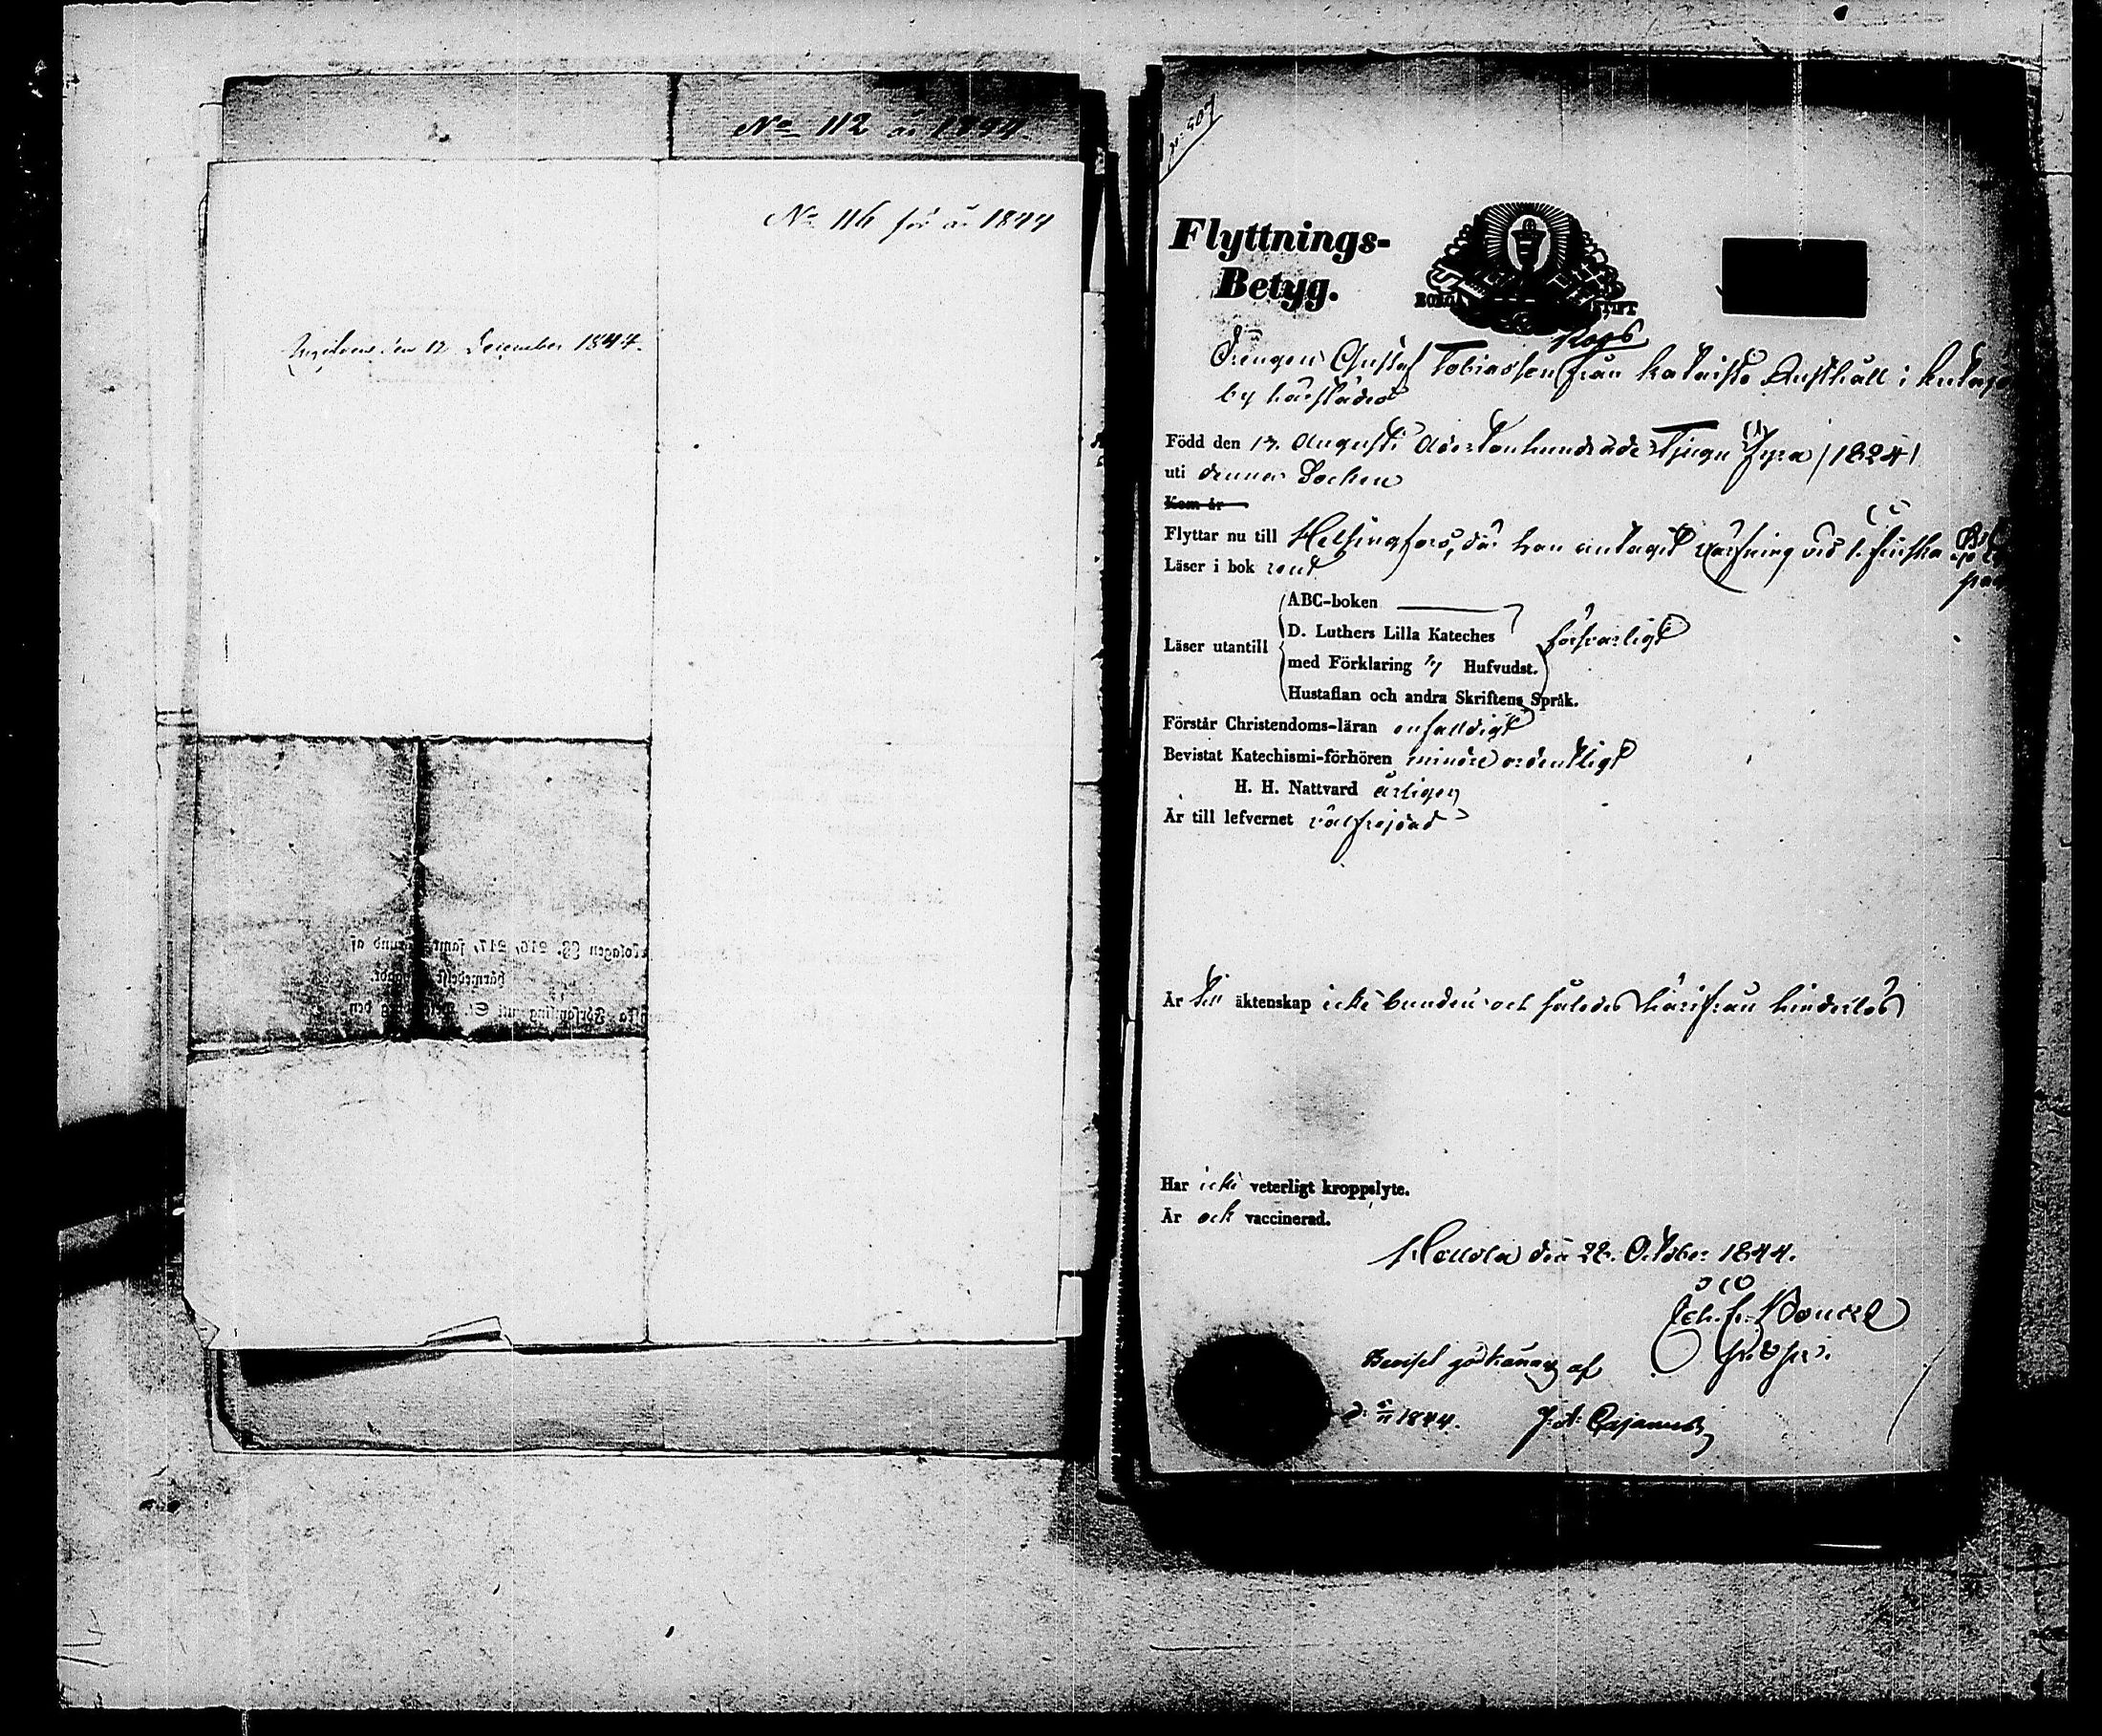 No 112 år 1844.
No 116 för år 1844
Ingifven den 12 December 1844.
p. 507
Flyttnings-
Betyg.
BORGÅ STIFT
Rops
Drengen Gustaf Tobiasson från Kataisto Rusthåll i
by härstädes
Född den 13. Augusti Adertonhundrade Tjugu Fyra /1824/
uti denna Socken
Kom år
Flyttar nu till Helsingfors, där han antagit värfning vid 1. Finska
Läser i bok rent
Läser utantill
ABC-boken
D. Luthers Lilla Kateches
med Förklaring Hufvudst.
Hustaflan och andra Skriftens Språk.
försvarligt
Förstår Christendoms-läran enfalldigt
Bevistat Katechismi-förhören mindre ordentligt
H. H. Nattvard årligen
Är till lefvernet välfrejdad
Är till äktenskap icke bunden och således härifrån hinderlös
Har icke veterligt kroppslyte.
Är ock vaccinerad.
Hollola den 22. October 1844.
Beviset godkännes af
1844. J. A. Cajanus